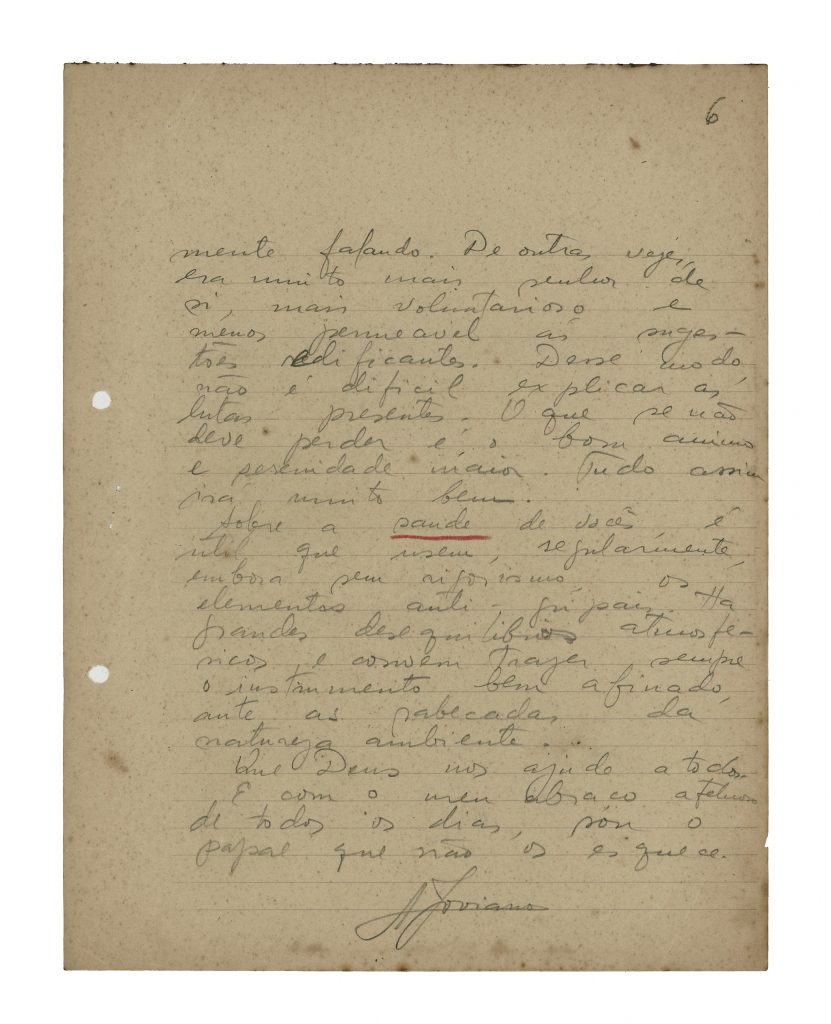 6
mente falando. De outras vezes,
era muito mais senhor de
si, mais voluntarioso e
menos permeavel ás suges-
tões edificantes. Desse modo,
não é dificil explicar as
lutas presentes. O que se não
deve perder é o bom animo
e serenidade maior. Tudo assim
irá muito bem.
Sobre a saude de vocês é
util que usem, regularmente,
embora sem rigorismo, os
elementos anti-gripais. Ha
grandes desequilibrios atmosfe-
ricos, e convém trazer sempre
o instrumento bem afinado,
ante as rabecadas da
natureza ambiente...
Que Deus nos ajude a todos.
E com o meu abraço afetuoso
de todos os dias, sou o
papae que não os esquece.
A Joviano